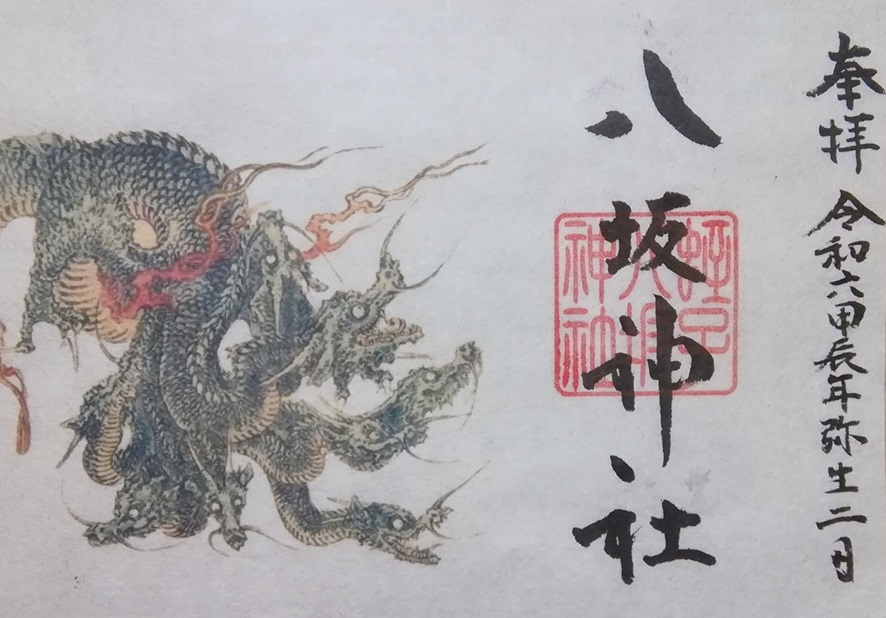 奉拝 令和六甲辰年弥生二日
八坂神社
八坂
神社